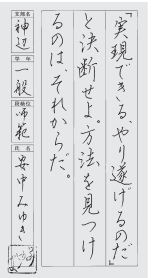 『実現できる、やり遂げるのだ』
と決断せよ。方法を見つけ
るのは、それからだ。
支部名 神辺 学年 一般 段級位 師範 氏名 安中みゆき